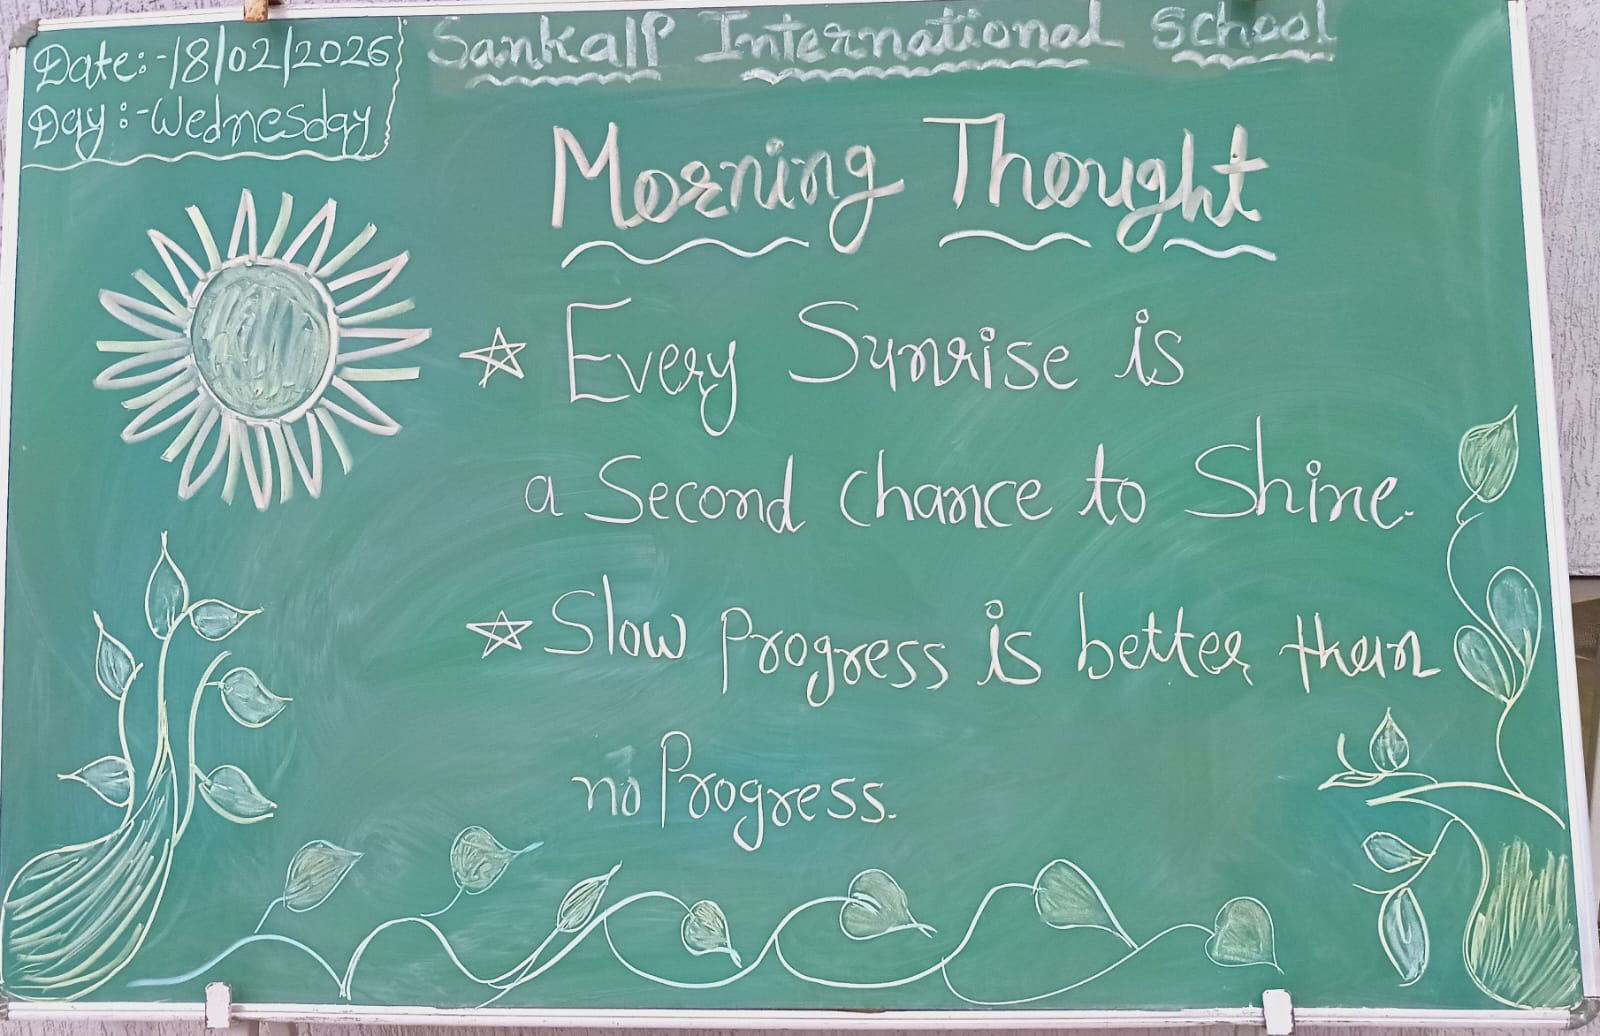 Date:-18/02/2026
Day:-Wednesday
Sankalp International School
Morning Thought
Every Sunrise is
a Second chance to Shine.
Slow progress is better than
no Progress.